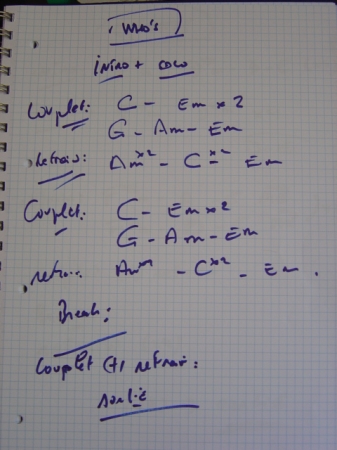 WHO'S
INTRO + COCO
Couplet: C - Em x2
G - Am - Em
Refrain: Am x2 - C x2 - Em
Couplet: C - Em x2
G - Am - Em
refrain: Am x2 - C x2 - Em.
Break:
Couplet et refrain:
sortie